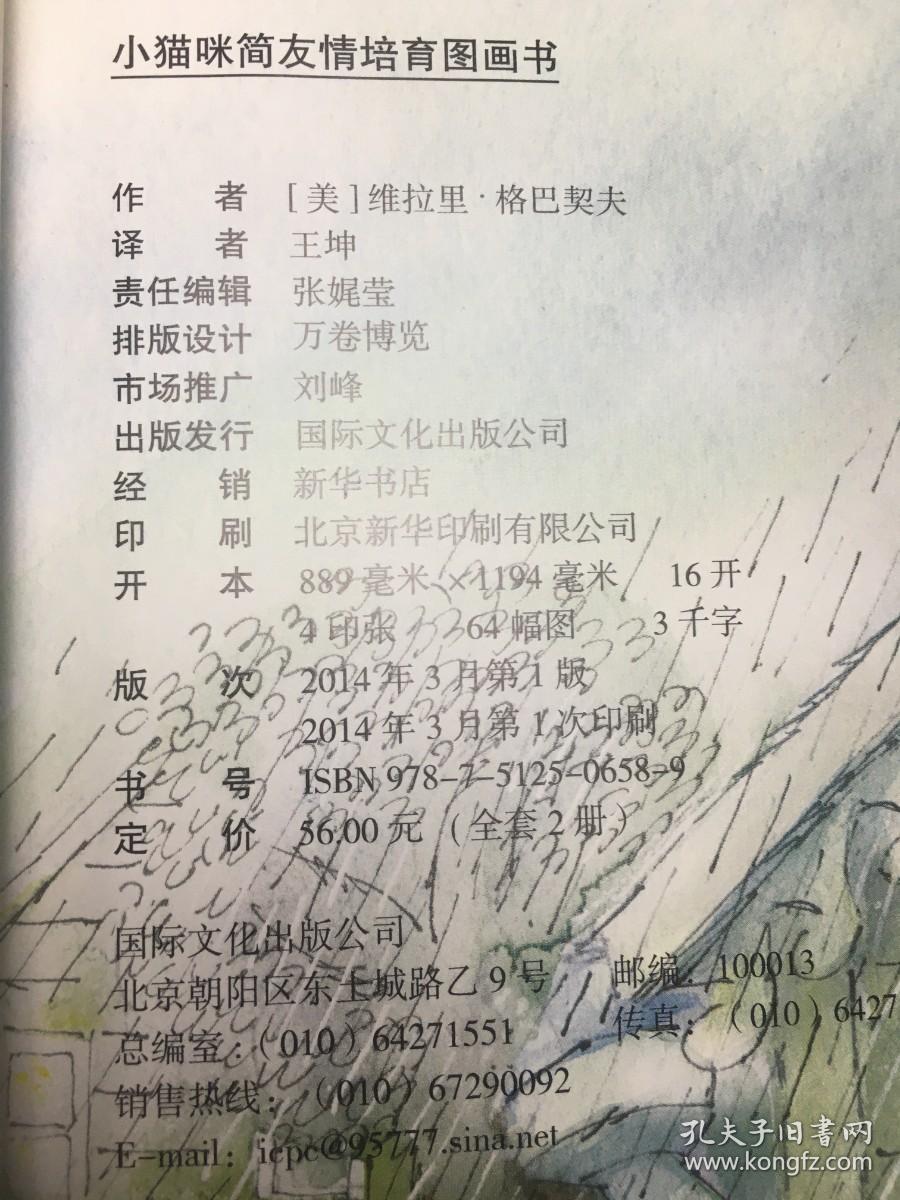 小猫咪简友情培育图画书
作者 [美]维拉里·格巴契夫
译者 王坤
责任编辑 张娓莹
排版设计 万卷博览
市场推广 刘峰
出版发行 国际文化出版公司
经销 新华书店
印刷 北京新华印刷有限公司
开本 889毫米×1194毫米 16开
4印张 64幅图 3千字
版次 2014年3月第1版
2014年3月第1次印刷
书号 ISBN 978-7-5125-0658-9
定价 56.00元(全套2册)
国际文化出版公司
北京朝阳区东土城路乙9号 邮编:100013
总编室:(010)64271551 传真:(010)6427
销售热线:(010)67290092
E-mail:icpc@95777.sina.net
孔夫子旧書网
www.kongfz.com